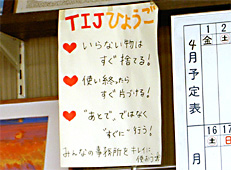 TIJひょうご
♥ いらない物は
すぐ捨てる!
♥ 使い終ったら
すぐ片づける!
♥ "あとで"ではなく
"すぐに"行う!
みんなの事務所をキレイに
使おう
4月予定表
1 2
金 土
16 17
日
月